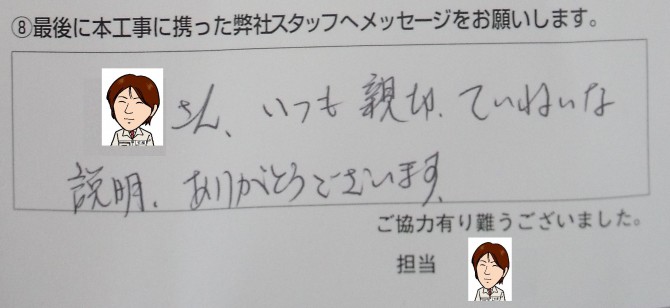 ⑧最後に本工事に携った弊社スタッフへメッセージをお願いします。
さん、いつも親切、ていねいな
説明、ありがとうございます。
ご協力有り難うございました。
担当